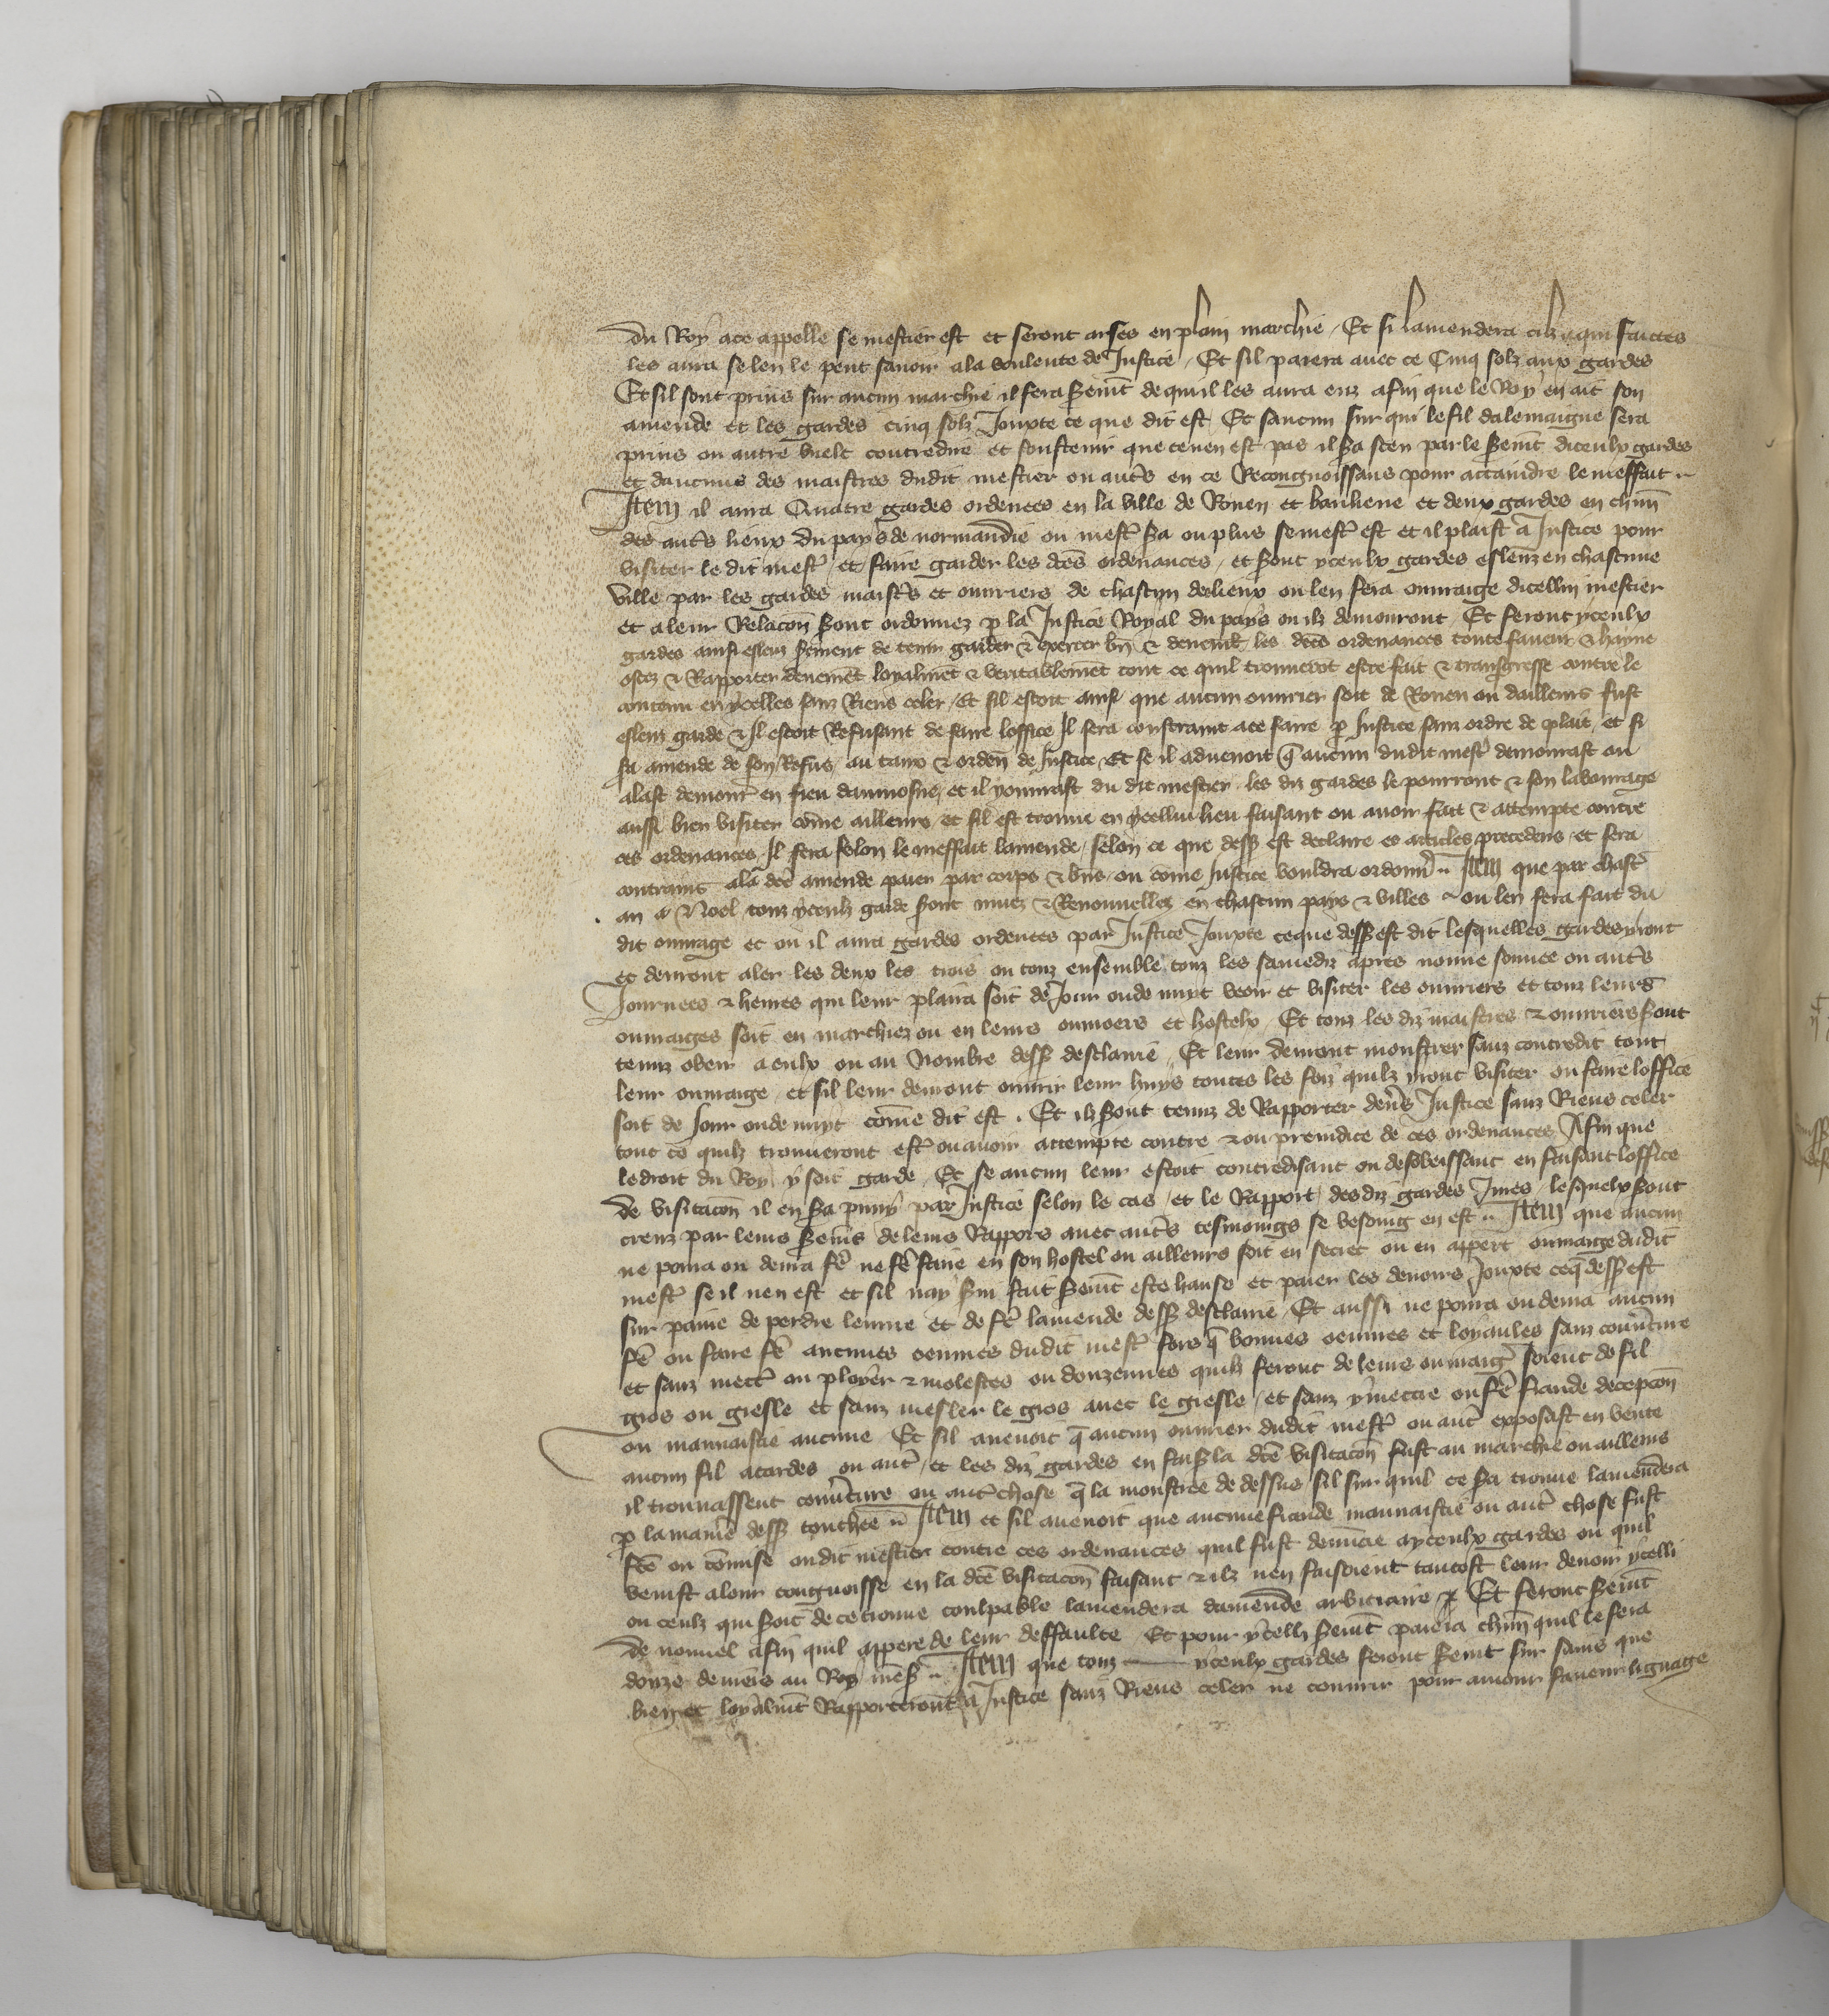 du Roy ace appelle se mestier est et seront arses en plain marchie / Et si lamendera cilz qui faictes
les aura se len le peut savoir ala voulente de Justice / Et sil paiera avec ce Cinq solz aux gardes
Et sil sont prins sur aucun marchie il fera serẽt de quil les aura euz afin que le Roy en ait son
amende et les gardes cinq solz Jouxte ce que dit est Et saucun sur qui le fil dalemaigne sera
prins ou autre vuelt contredire et soustenir que ce nen est pas il sa sceu par le serẽt diceulx gardes
et daucuns des maistres dudit mestier ou autrs en ce Recongnoissans pour actaindre le meffait
Item il aura Quatre gardes ordenees en la ville de Rouen et banlieue et deux gardes en chũn
des autrs lieux du pays de normandie ou mestr sa ou plus se mestr est et il plaist a Justice pour
visiter le dit mestr et faire garder les dces ordenances / et sont yceulx gardes esleuz en chascune
ville par les gardes maistrs et ouvriers de chascun des lieux ou len fera ouvraige dicellui mestier
et a leur Relacon sont ordonnez p la Justice Royal du pays ou ilz demouront / Et feront yceulx
gardes ainsi esleuz serment de tenir garder & exercer bn & deuemt les dces ordenances toute faveur & hayne
ostez & Rapporter deuement loyalment & veritablement tout ce quil trouveront estre fait & transgresse contre le
contenu en ycelles sanz Riens celer / Et sil estoit ainsi que aucun ouvrier soit de Rouen ou dailleurs fust
esleu garde & Il estoit Refusant de faire loffice Il sera constraint ace faire p Justice sanz ordre de plait et si
fa amende de son Refus au taux & orden de Justice Et se il advenoit q aucun dudit mestr demourast ou
alast demourr en fieu daumosne et il y ouvrast du dit mestier les diz gardes le pourront & son labourage
aussi bien visiter cõme ailleurs et sil est trouve en ycellui lieu faisant ou avoir fait & attempte contre
ces ordenances Il fera selon le meffait lamende selon ce que dess est declaire es articles precedens et sera
contraint ala dce amende paier par corps & bns ou cõme Justice vouldra ordonnr Item que par chastr
an a Noel touz yceulz garde sont muez & Renouvellez en chascun pays & villes ou len fera fait du
dit ouvrage et ou il aura gardes ordenees par Justice Jouxte ceque dess est dit lesquelles gardes yront
et devront aler les deux les trois ou touz ensemble touz les samediz apres nonne sonnee ou autrs
Journees & heures qui leur plaira soit de Jour ou de nuyt veoir et visiter les ouvriers et touz leurs
ouvraiges soit en marchiez ou en leurs ouvroers et hostelx / Et touz les diz maistres & ouvriers sont
tenuz obeir a eulx ou au Nombre dess desclairie / Et leur devront monstrer sanz contredit tout
leur ouvraige et sil leur devront ouvrir leur huys toutes les foiz quilz yront visiter ou faire loffice
soit de Jour ou de nuyt cõme dit est . Et ilz sont tenuz de Rapporter devrs Justice sanz Riens celer
tout ce quilz trouveront estr ou avoir attempte contre & ou preiudice de ces ordenances Afin que
le droit du Roy y soit garde Et se aucun leur estoit contredisant ou desobeissant en faisant loffice
de visitacon il en sa puny par Justice selon le cas et le Rapport des diz gardes Jures lesquelx sont
creuz par leurs sermts de leurs Rappors avec autrs tesmoings se besoing en est Item que aucun
ne pourra ou devra fe ne fe faire en son hostel ou ailleurs soit en secret ou en appert ouvraige dudit
mestr se il nen est et sil nay fait serẽt este hanse et paier les devoirs Jouxte ceq dess est
sur paine de perdre leuvre et de fe lamende dess desclairie / Et aussi ne pourra ou devra aucun
fe ou faire fe aucunes oeuvres dudit mestr fors q bonnes oeuvres et loyaules sanz couvrture
et sanz mectr ou ployer & molestes ou douzennes quilz feront de leurs ouvraig soient de fil
gros ou gresle et sanz mesler le gros avec le gresle / et sanz y mectre ou fe fraude decepcon
ou mauvaistie aucune Et sil avenoit q aucun ouvrier dudit mestr ou autr exposast en vente
aucun fil a cardes ou autr et les diz gardes en fais la dce visitacon fust au marchie ou ailleurs
il trouvassent couvrture ou autr chose q la monstree de dessus sil sur quil ce sa trouve lamendera
p la maniere dess touchee Item et sil avenoit que aucune fraude mauvaistie ou autr chose fust
fce ou cõmise ou dit mestier contre ces ordenances quil fust denuncie a yceulx gardes ou quil
venist a leur congnoisse en la dce visitacon faisant & ilz nen faisoient tantost leur devoir ycelli
ou ceulz qui soit de ce trouve coulpable lamendera damende arbitraire Et feront serẽt
de nouvel afin quil appere de leur deffaulte Et pour ycelli serẽt paiera chũn quil le fera
douze deniers au Roy mes Item que touz yceulx gardes feront serẽt sur sains que
bien et loyalmt Rapporteront a Justice sanz Riens celer ne couvrir pour amour faveur lignage